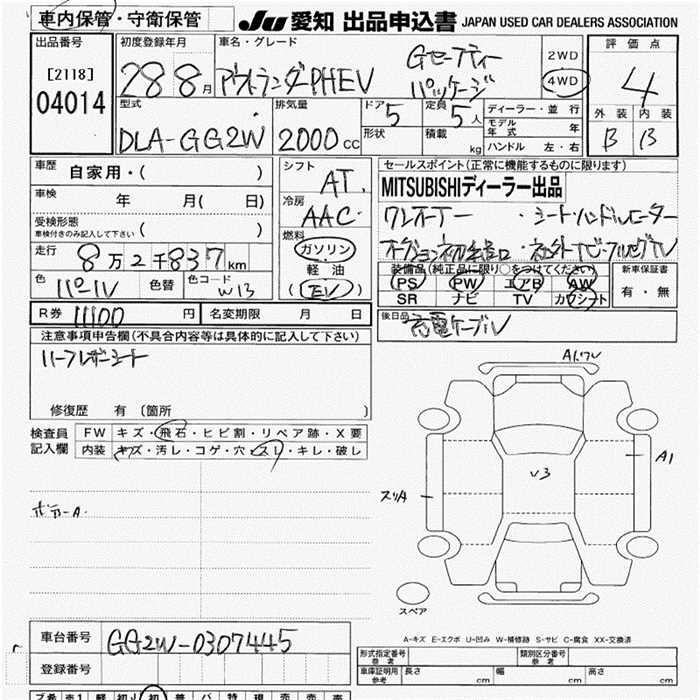 車内保管・守衛保管 JU 愛知 出品申込書 JAPAN USED CAR DEALERS ASSOCIATION
出品番号 初度登録年月 車名・グレード 評価点
[2118] 28 8月 アウトランダーPHEV Gセーフティー 2WD 4
04014 パッケージ 4WD
型式 排気量 ドア 5 定員 5人 ディーラー・並行 外装 内装
DLA-GG2W 2000cc 形状 積載 kg モデル年式 年 B B
ハンドル 左・右
車歴 自家用・( ) シフト AT. セールスポイント(正常に機能するものに限ります)
車検 年 月( 日) 冷房 AAC MITSUBISHIディーラー出品
受検形態 ( ) ワンオーナー ・シートハンドルヒーター
車検付きのみ記入して下さい 燃料
走行 8万2千837km ガソリン
軽油 装備品(純正品に限り○をつけてください) 新車保証書
色 パール 色替 色コード W13 (EV) PS PW エアB AW 有・無
SR ナビ TV カワシート
R券 11100円 名変期限 月 日 後日品 充電ケーブル
注意事項申告欄(不具合内容等は具体的に記入して下さい)
ハーフレザーシート
修復歴 有 (箇所 )
検査員記入欄 FW キズ・飛石・ヒビ割・リペア跡・X要
内装 キズ・汚レ・コゲ・穴・スレ・キレ・破レ
A1.ワレ
A1
V3
スリA
ボデーA.
スペア
A-キズ E-エクボ U-凹み W-補修跡 S-サビ C-腐食 XX-交換済
車台番号 GG2W-0307445
登録番号
形式指定番号 参考 類別区分番号 参考
車庫証明用 参考 長さ cm 幅 cm 高さ cm